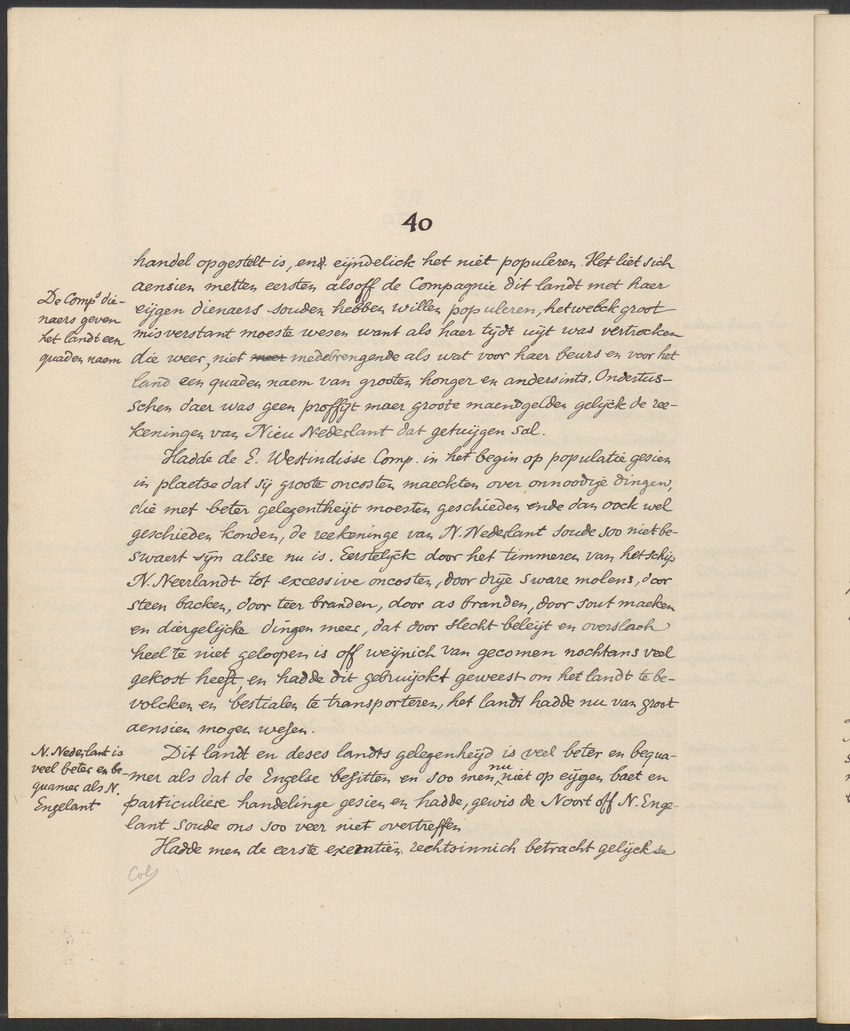 40
handel opgestelt is, ende eijndelick het niet populeren. Het liet sich
aensien metten eersten alsoff de Compagnie dit landt met haer
De Comps die-
naers geven
het landt een
quaden naem
eijgen dienaers souden hebben willen populeren, het welck groot
misverstant moeste wesen want als haer tijdt uijt was vertrocken
die weer, niet meer medebrengende als wat voor haer beurs en voor het
land een quaden naem van grooten honger en andersints. Ondertus-
schen daer was geen proffijt maer groote maendgelden gelijck de ree-
keningen van Nieu Nederlant dat getuijgen sal.
Hadde de E. Westindisse Comp. in het begin op populatie gesien
in plaetse dat sij groote oncosten maeckten over onnoodige dingen,
die met beter gelegentheijt moesten geschieden ende dan oock wel
geschieden konden, de reekeninge van N. Nederlant soude soo niet be-
swaert sijn alsse nu is. Eerstelijck door het timmeren van het schip
N. Neerlandt tot excessive oncosten, door drije sware molens, door
steen backen, door teer branden, door as branden, door sout maeken
en diergelijcke dingen meer, dat door slecht beleijt en overslach
heel te niet geloopen is off weijnich van gecomen nochtans veel
gekost heeft, en hadde dit gebruijckt geweest om het landt te be-
volcken en bestialen te transporteren, het landt hadde nu van groot
aensien mogen wesen.
N. Nederlant is
veel beter en be-
quamer als N.
Engelant
Dit landt en deses landts gelegenheijd is veel beter en bequa-
mer als dat de Engelse besitten en soo men nu niet op eijgen baet en
particuliere handelinge gesien en hadde, gewis de Noort off N. Enge-
lant soude ons soo veer niet overtreffen
Hadde men de eerste exemtiën rechtsinnich betracht gelijck se